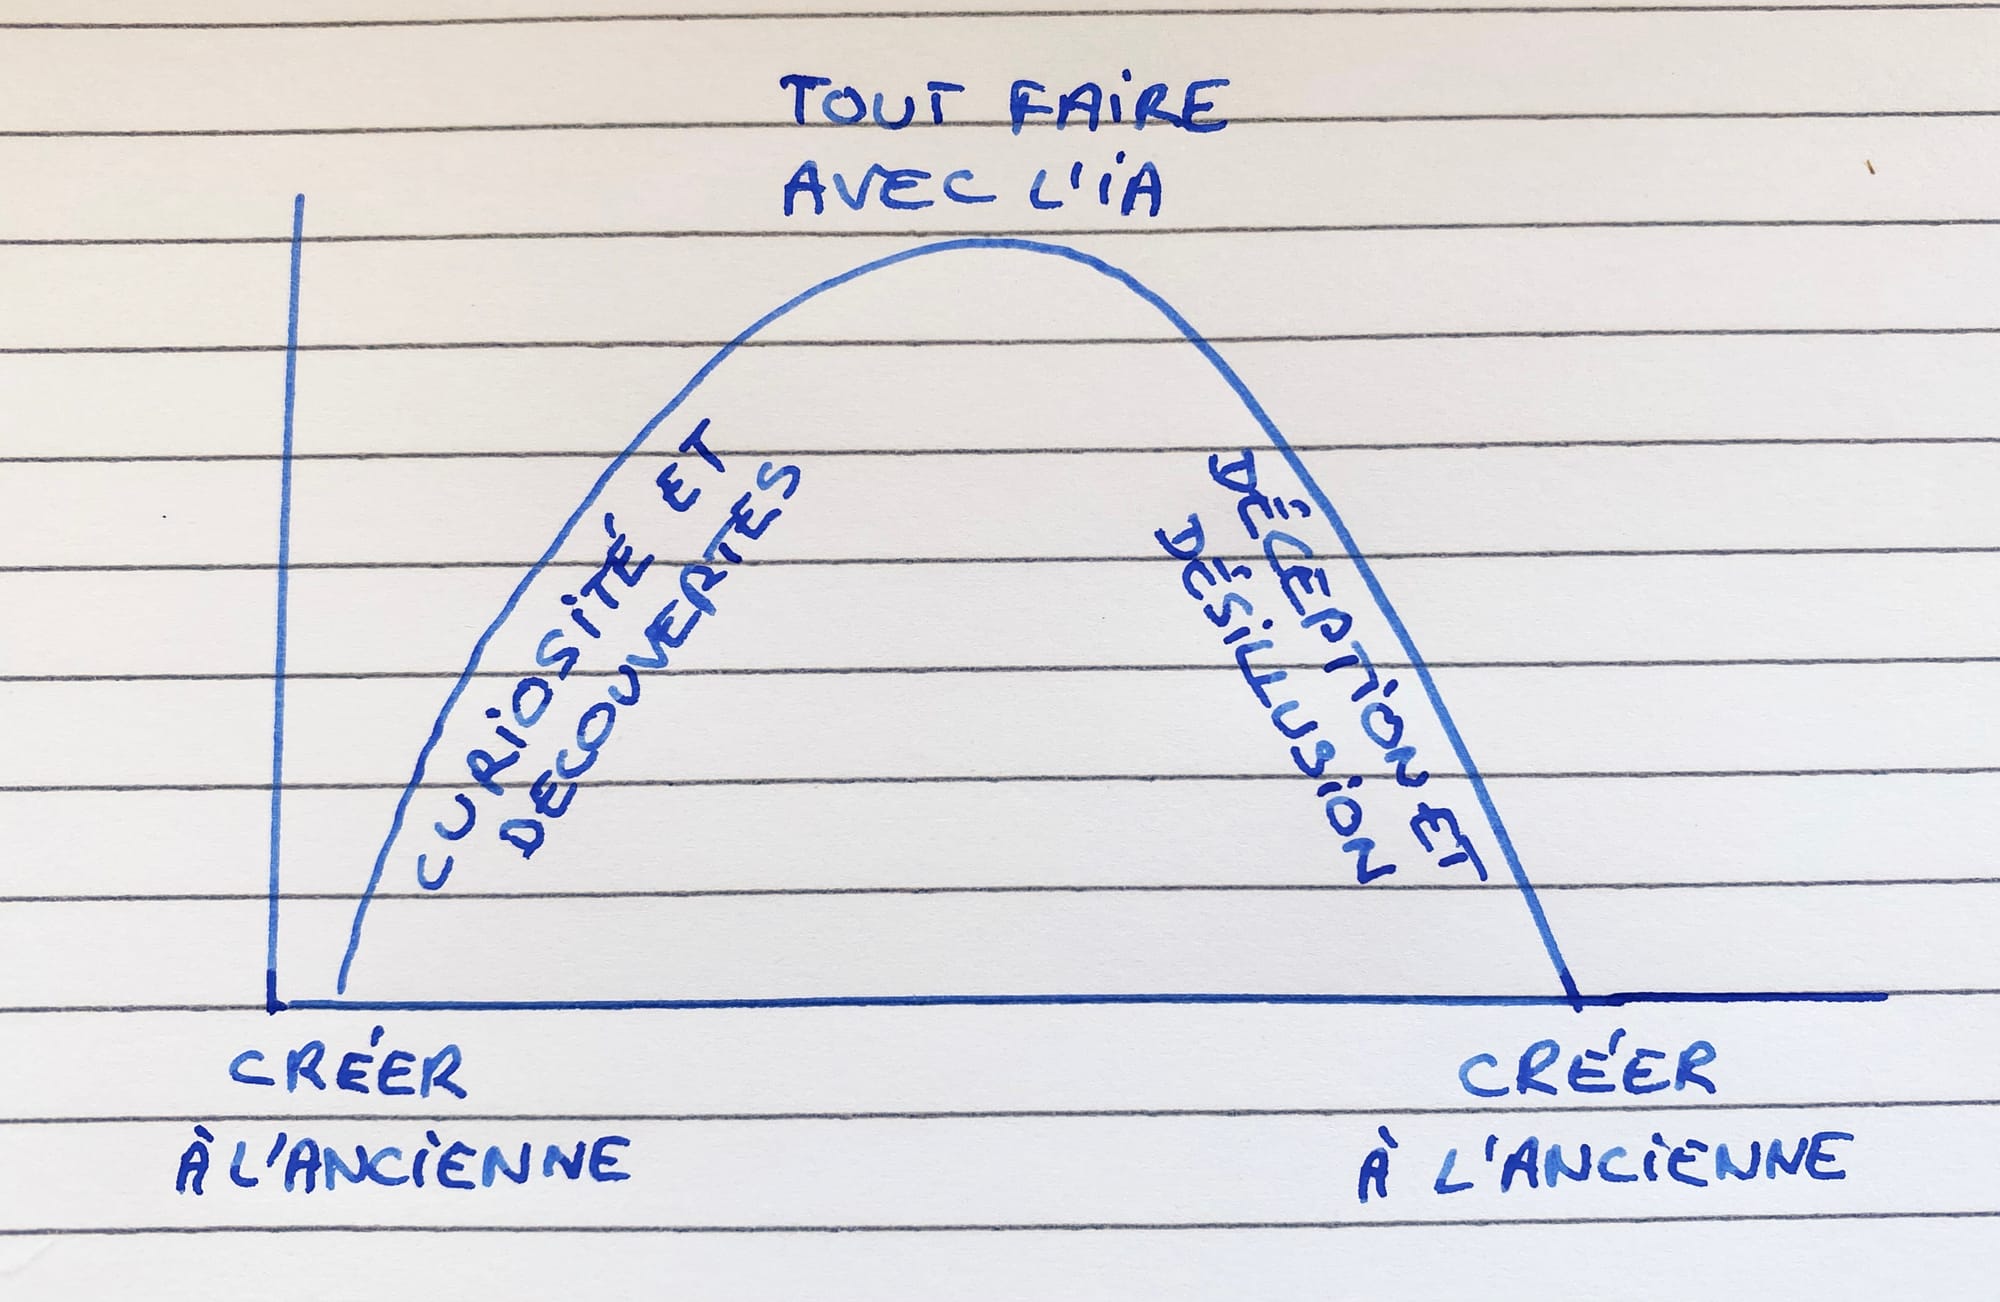 TOUT FAIRE
AVEC L'IA
CURIOSITÉ ET
DECOUVERTES
DÉCEPTION ET
DÉSILLUSION
CRÉER
À L'ANCIENNE
CRÉER
À L'ANCIENNE